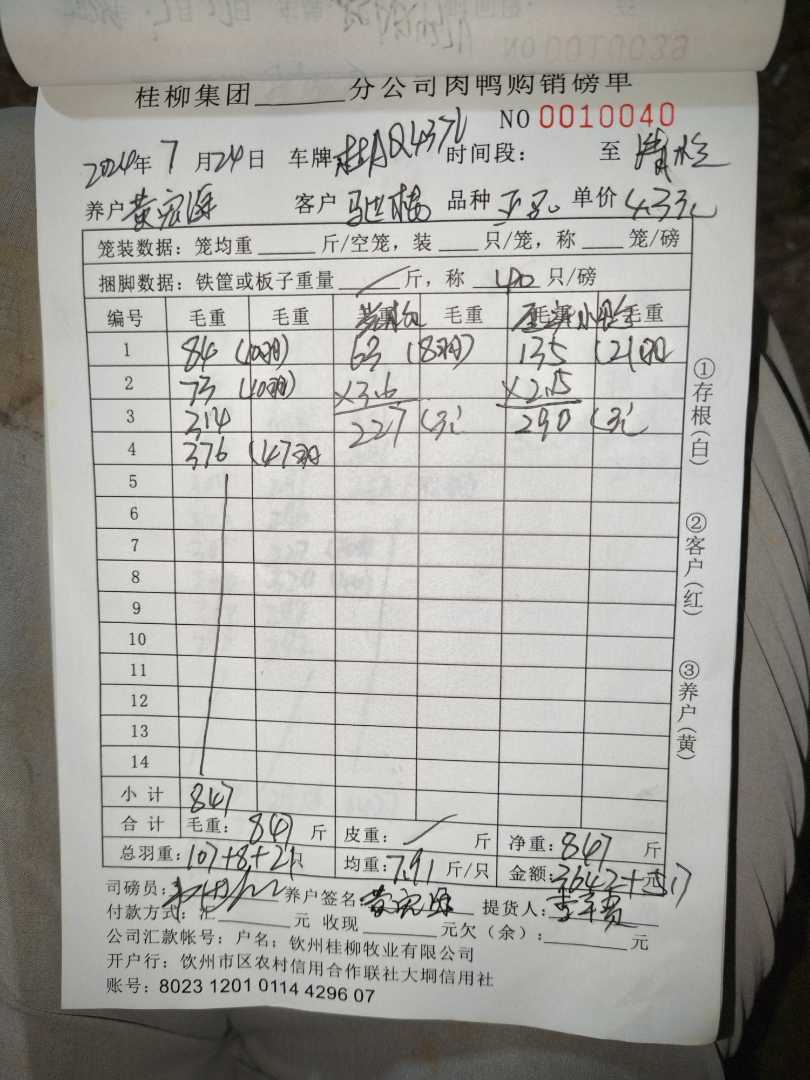 桂柳集团______分公司肉鸭购销磅单
NO 0010040
2024年 7 月 24日 车牌 桂AQ437L 时间段: 至
养户 黄宗源 客户 品种 单价 4.33元
笼装数据: 笼均重 ____ 斤/空笼, 装 ___ 只/笼, 称 ___ 笼/磅
捆脚数据: 铁筐或板子重量 / 斤, 称 40 只/磅
编号 毛重 毛重 毛重 毛重
1 84 (40羽) 63 (8羽) 135 (21羽
2 73 (40羽) ×3.6 ×2.15
3 314 227 290
4 376 (47羽
5
6
7
8
9
10
11
12
13
14
小计 847
合计 毛重: 847 斤 皮重: / 斤 净重: 847 斤
总羽重: 107+8+21只 均重: 7.91 斤/只 金额: 3642+517 元
司磅员: 养户签名: 黄宗源 提货人:
付款方式: 汇______元 收现______元欠(余): ______元
公司汇款帐号: 户名: 钦州桂柳牧业有限公司
开户行: 钦州市区农村信用合作联社大垌信用社
账号: 8023 1201 0114 4296 07
①存根(白)
②客户(红)
③养户(黄)